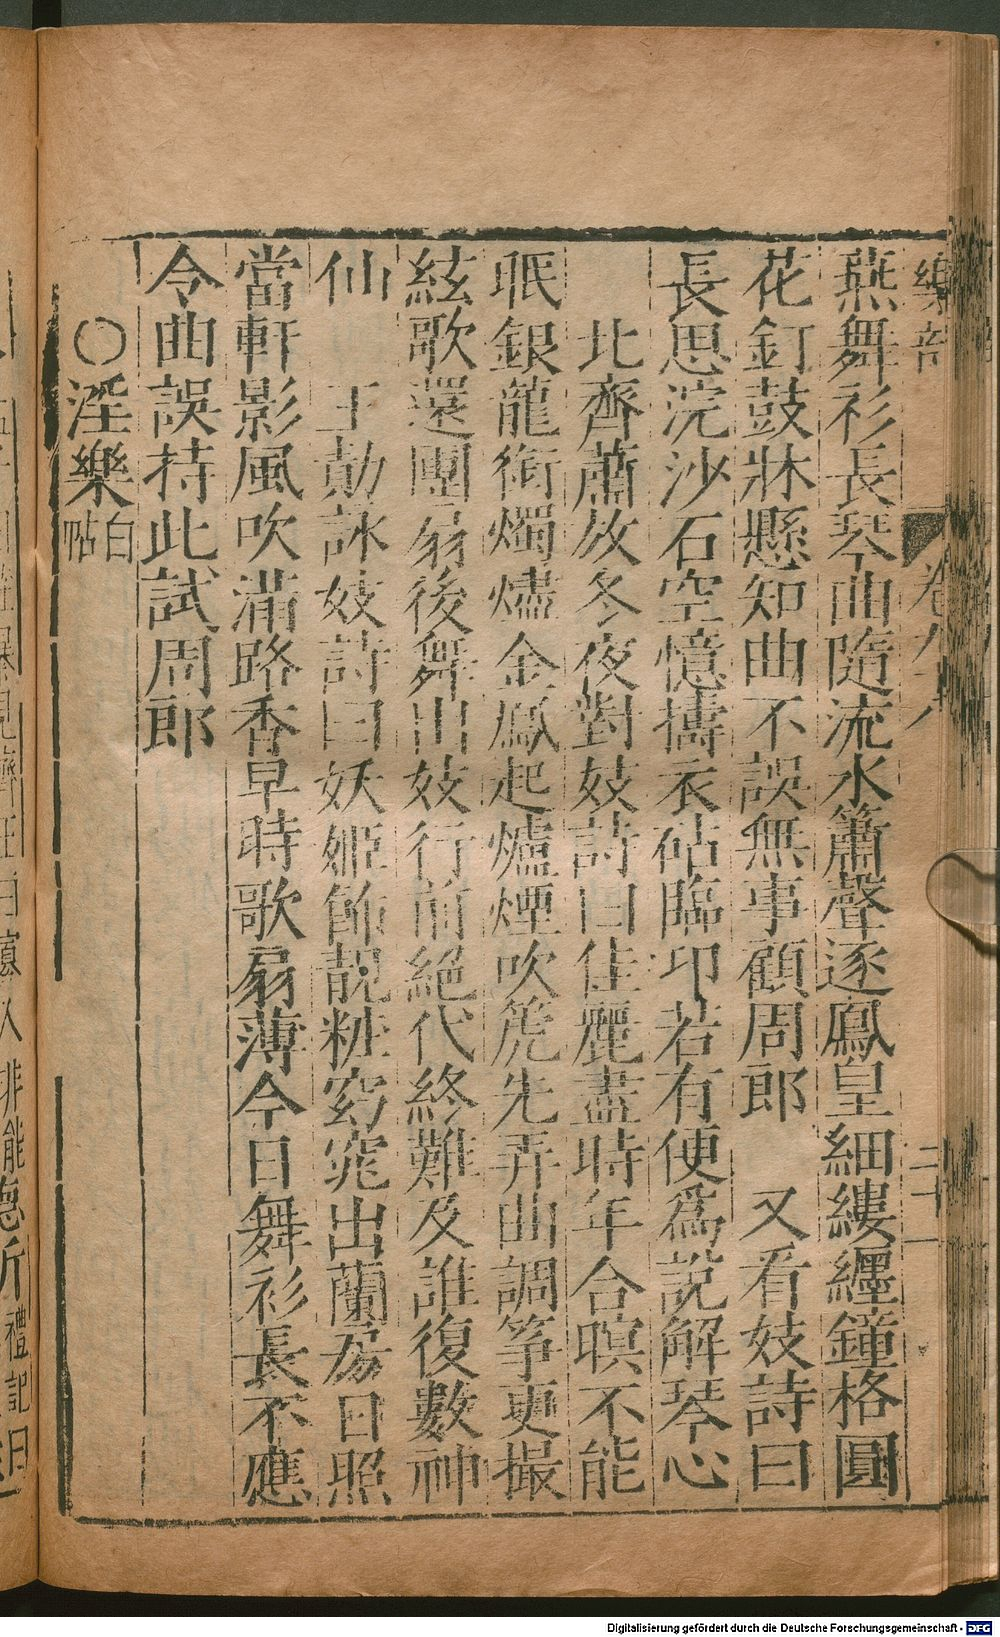 樂部 卷之六 二十一
燕舞衫長琴曲隨流水簫聲逐鳳皇細縷纏鐘格圓
花釘鼓牀懸知曲不誤無事顧周郎 又看妓詩曰
長思浣沙石空憶擣衣砧臨卭若有使爲說解琴心
北齊蕭放冬夜對妓詩曰佳麗盡時年合暝不能
眠銀龍銜燭燼金鳳起爐煙吹箎先弄曲調筝更撮
絃歌還團扇後舞出妓行前絕代終難及誰復數神
仙 王勣詠妓詩曰妖姬飾靚粧窈窕出蘭房日照
當軒影風吹滿路香早時歌扇薄今日舞衫長不應
令曲誤持此試周郎
〇淫樂 白帖
Digitalisierung gefördert durch die Deutsche Forschungsgemeinschaft - DFG